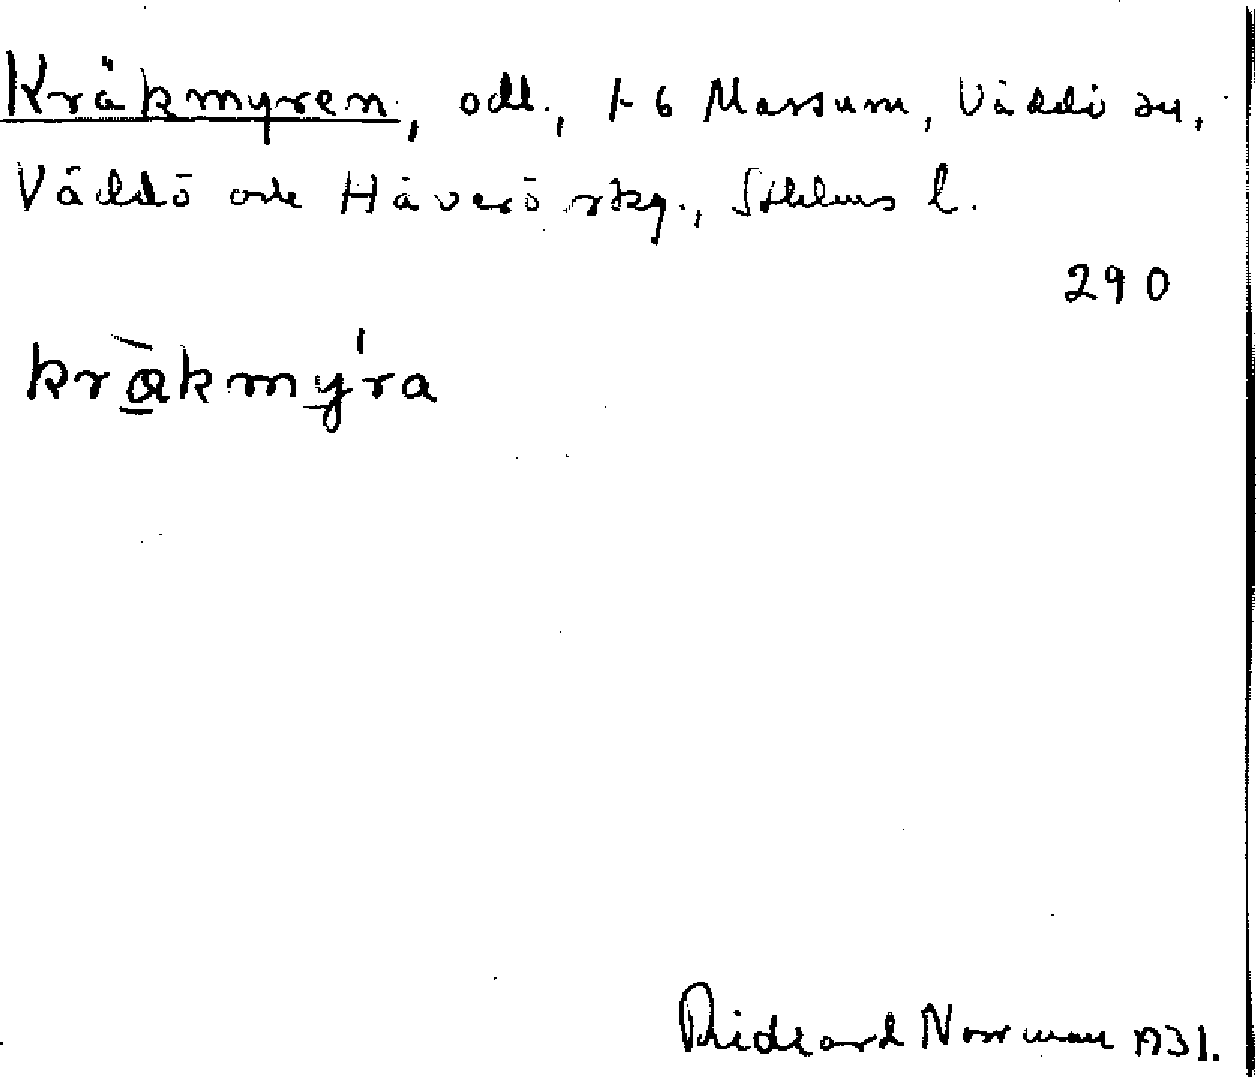 Kråkmyren, odl., 1-6 Massum, Väddö sn,
Väddö och Häverö skg., Sthlms l.
290
kråkmy'ra
Richard Norrman 1931.